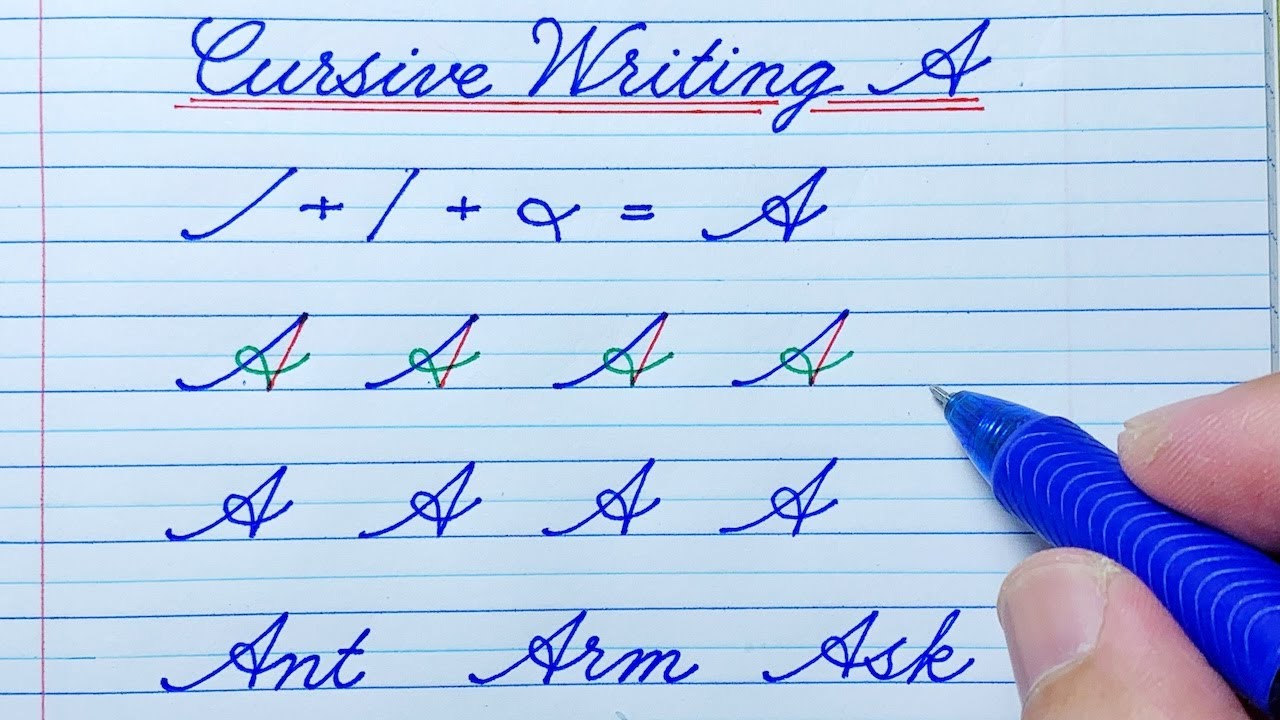 Cursive Writing A
/ + / + α = A
A A A A
A A A A
Ant Arm Ask